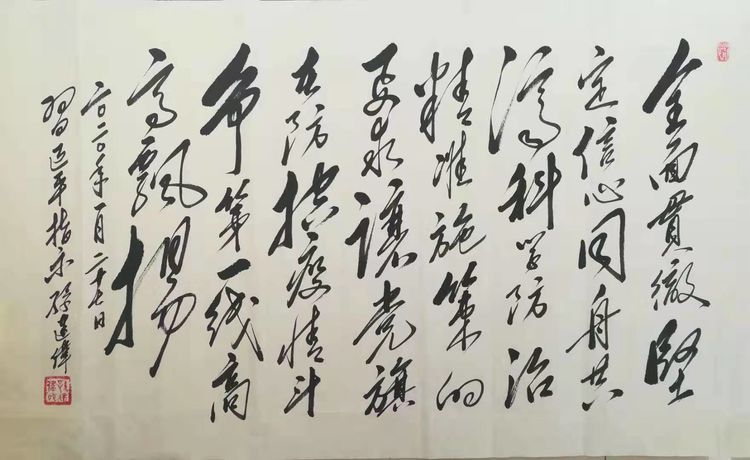 全面貫徹堅
定信心同舟共
濟科学防治
精准施策的
要求讓党旗
在防控疫情斗
争第一线高
高飄揚
二〇二〇年一月二十七日
習近平指示孫建偉